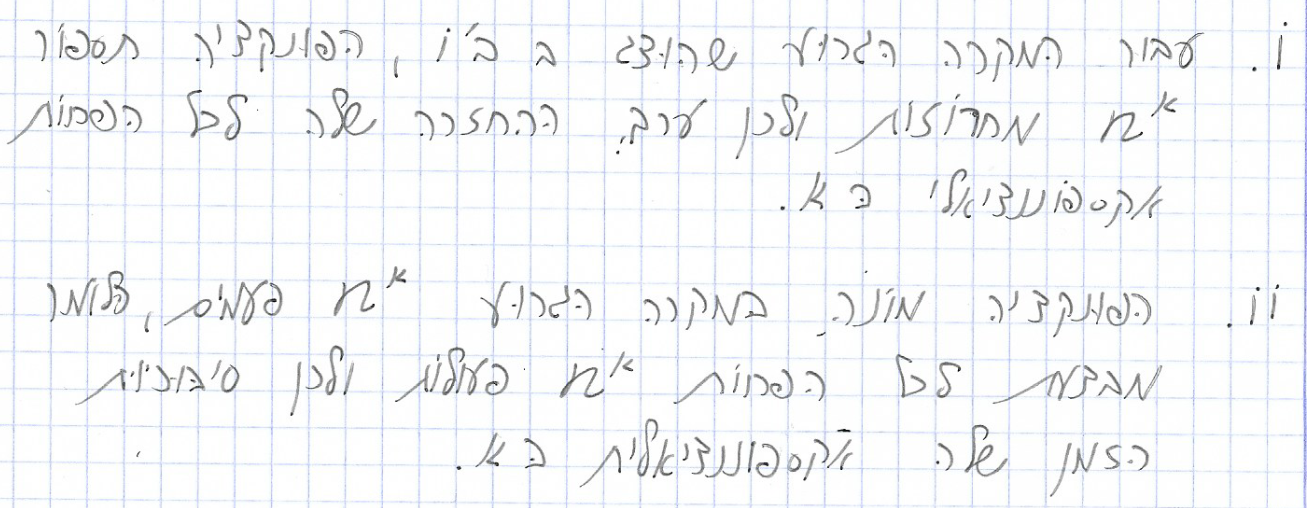 i. עבור המקרה הגרוע שהוצג ב ב'i, הפונקציה תספור
n^k מחרוזות ולכן ערך ההחזרה שלה לכל הפחות
אקספוננציאלי ב k.
ii. הפונקציה מונה במקרה הגרוע n^k פעמים, כלומר
מבצעת לכל הפחות n^k פעולות ולכן סיבוכיות
הזמן שלה אקספוננציאלית ב k.